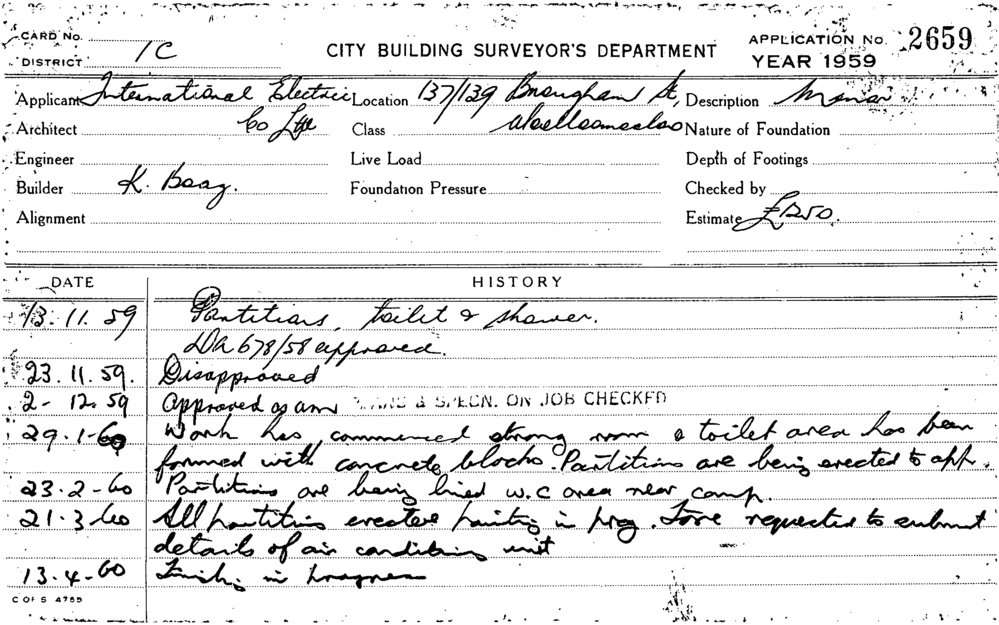 CARD No.
DISTRICT 1C
CITY BUILDING SURVEYOR'S DEPARTMENT
APPLICATION No. 2659
YEAR 1959
Applicant International Electric Location 137/139 Brougham St, Description Minor
Architect Co Ltd Class Woolloomooloo Nature of Foundation
Engineer Live Load Depth of Footings
Builder K. Foundation Pressure Checked by
Alignment Estimate £1250.
DATE HISTORY
13.11.59 Partitions, toilet & shower.
DA 678/58 approved.
23.11.59. Disapproved
2-12.59 Approved as am PLANS & SPECN. ON JOB CHECKED
29.1-60 Work has commenced strong room & toilet area has been
formed with concrete blocks. Partitions are being erected to app.
23-2-60 Partitions are being lined w.c area near comp.
21.3.60 All partitions erected painting in prog. requested to submit
details of air conditioning unit
13.4-60 Finishing in progress
C OF S 4755